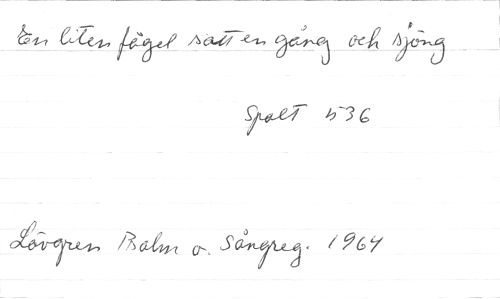 En liten fågel satt en gång och sjöng
Spalt 536
Lövgren Psalm o. Sångreg. 1964